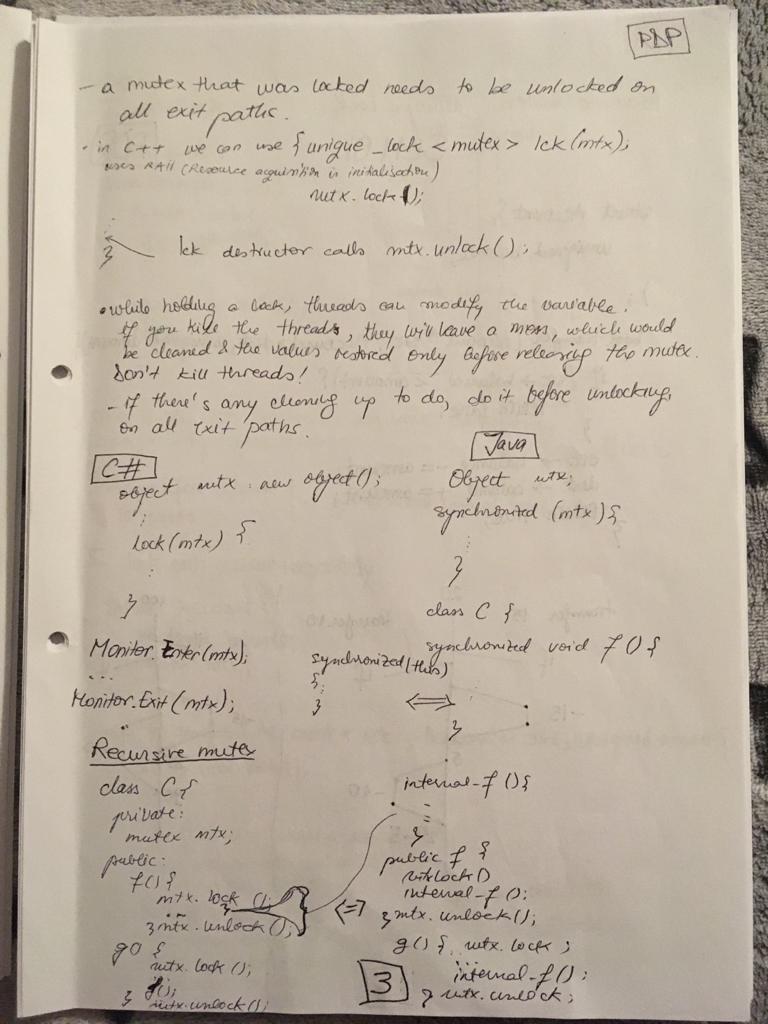 PDP
- a mutex that was locked needs to be unlocked on
all exit paths.
• in C++ we can use { unique_lock <mutex> lck(mtx);
uses RAII (Resource acquisition is initialisation)
mtx.lock();
⋮
} lck destructor calls mtx.unlock();
• while holding a lock, threads can modify the variable.
If you kill the threads, they will leave a mess, which would
be cleaned & the values restored only before releasing the mutex.
Don't kill threads!
- if there's any cleaning up to do, do it before unlocking,
on all exit paths.
C#
object mtx = new object();
⋮
lock(mtx) {
⋮
}
Monitor.Enter(mtx);
...
Monitor.Exit(mtx);
Java
Object mtx;
synchronized (mtx) {
⋮
}
class C {
synchronized void f() {
⋮
}
⟺
synchronized(this)
{
⋮
}
Recursive mutex
class C {
private:
mutex mtx;
public:
f() {
mtx.lock();
...
} mtx.unlock();
g() {
mtx.lock();
f();
} mtx.unlock();
<=>
internal_f() {
=
}
public f {
mtxlock()
internal_f();
} mtx.unlock();
g() { mtx.lock;
...
internal_f();
} mtx.unlock;
3